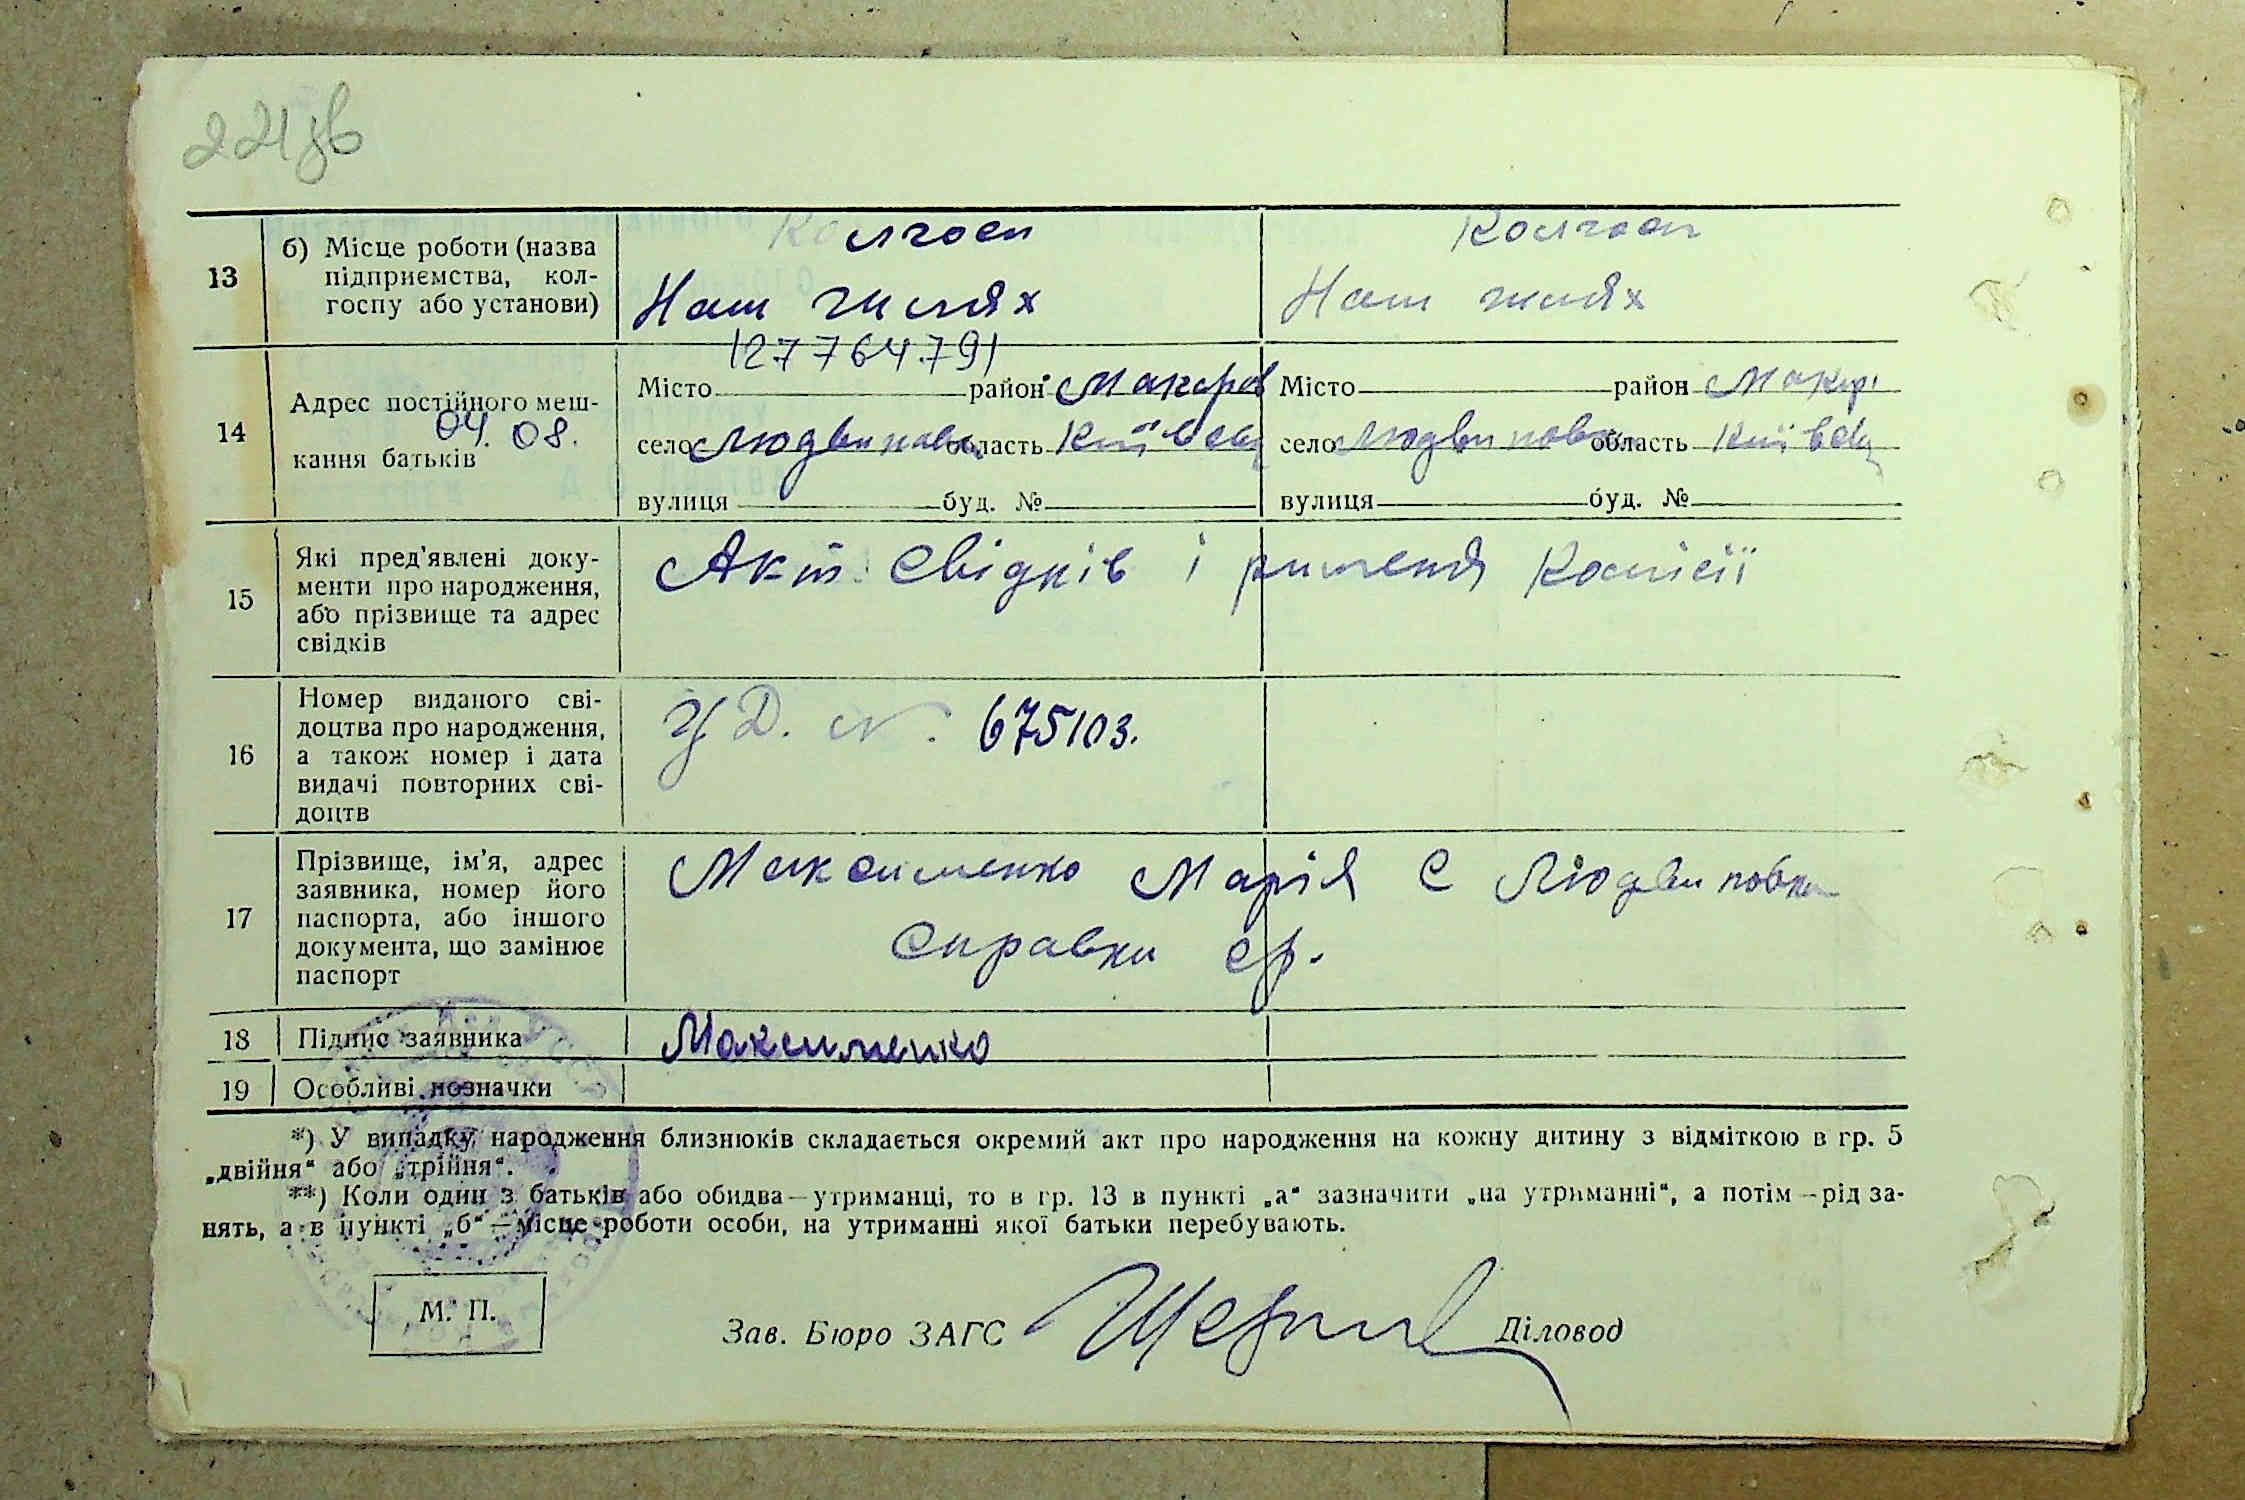 221зв
13 б) Місце роботи (назва підприємства, кол-госпу або установи) Колгосп Колгосп
Наш шлях Наш шлях
127764791
14 Адрес постійного меш-
04. 08.
кання батьків
Місто район Макарів Місто район Макар
село Людвинівка область Київськ село Людвинівка область Київськ
вулиця буд. № вулиця буд. №
15 Які пред'явлені доку-
менти про народження,
або прізвище та адрес
свідків
Акт свідків і ришення Комісії
16 Номер виданого сві-
доцтва про народження,
а також номер і дата
видачі повторних сві-
доцтв
УД. N. 675103.
17 Прізвище, ім'я, адрес
заявника, номер його
паспорта, або іншого
документа, що замінює
паспорт
Максименко Марія С Людвиновка
Справки ср.
18 Підпис заявника Максименко
19 Особливі позначки
*) У випадку народження близнюків складається окремий акт про народження на кожну дитину з відміткою в гр. 5
„двійня“ або „трійня“.
**) Коли один з батьків або обидва—утриманці, то в гр. 13 в пункті „а“ зазначити „на утриманні“, а потім—рід за-
нять, а в пункті „б“—місце роботи особи, на утриманні якої батьки перебувають.
М. П.
Зав. Бюро ЗАГС Діловод